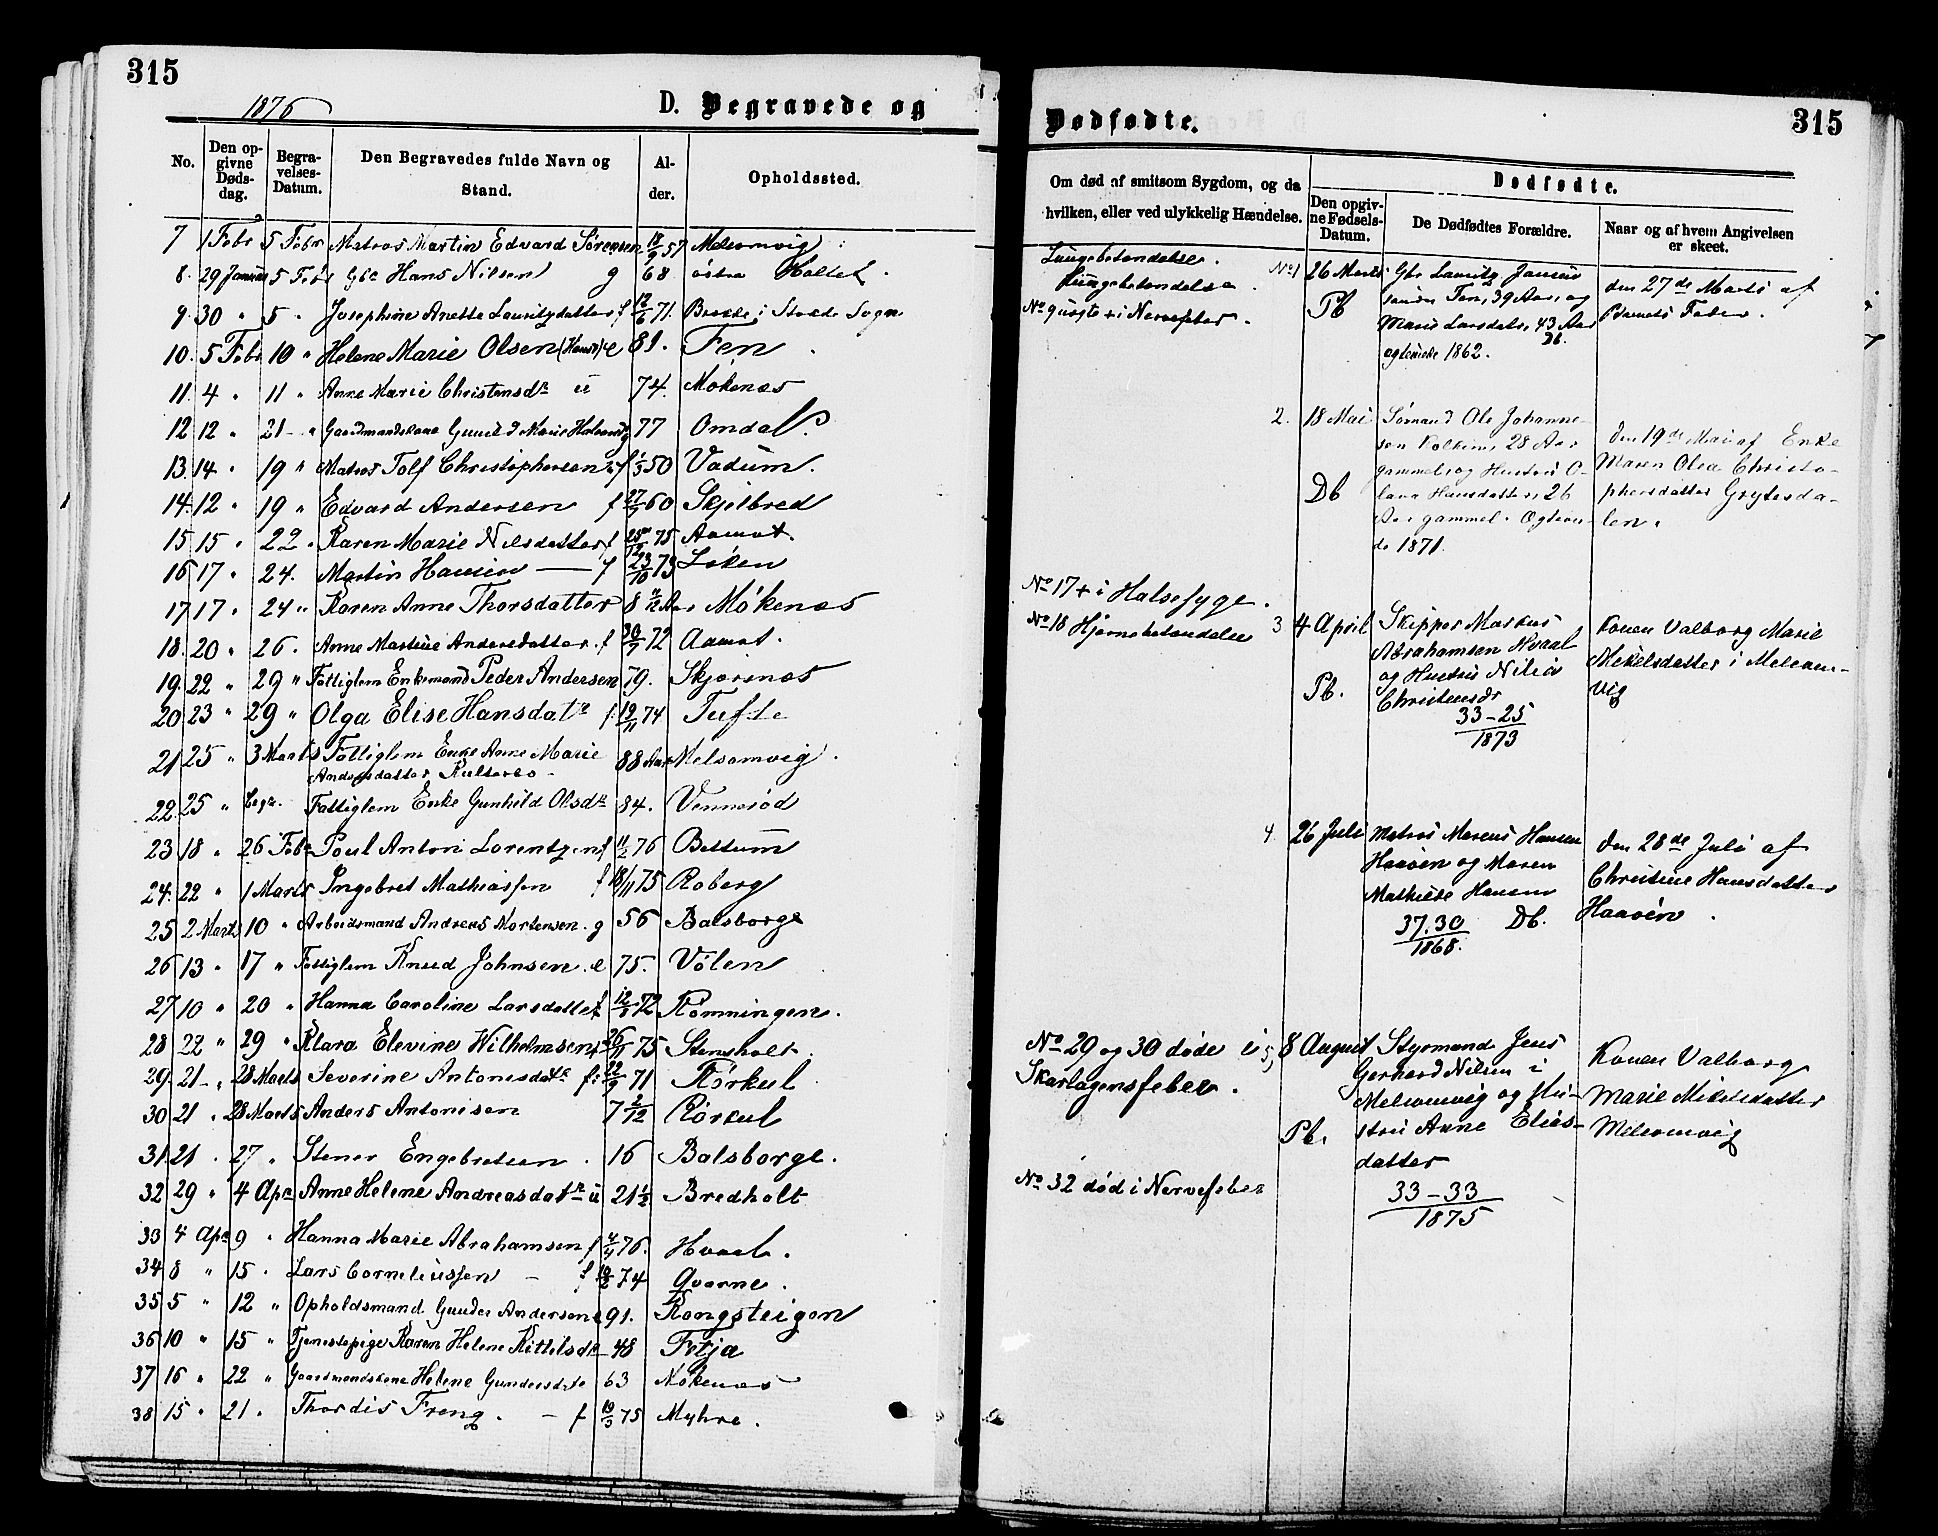 315
1876
D. Begravede og
No.
Den opgivne Dødsdag.
Begravelses-Datum.
Den Begravedes fulde Navn og Stand.
Alder.
Opholdssted.
7 1 Febr 5 Febr Matros Martin Edvard Sörensen 57 Melsomvig
8. 29 Januar 5 Febr Gbr Hans Nilsen g 68. östre Holtet.
9. 30 " 5 " Josephine Anette Lauritzdatter f 12/6 71.
10. 5 Febr 10 " Helene Marie Olsen e 81. Fen
11. 4 " 11 " Anne Marie Christensdr u 74. Mokenæs
12 12 " 21 " Gaardmandskone Gunild Marie 77 Omdal.
13. 14 " 19 " Matros Tolf Christophersen f 50 Vadum.
14. 12 " 19 " Edvard Andersen f 27/7 60 Skjelbred
15 15 " 22 " Karen Marie Nilsdatter f 75 Aamot.
16 17 " 24. Martin Hansen — f 23/10 73 Löken
17. 17 " 24 " Karen Anne Thorsdatter 8 Mökenæs
18. 20 " 26. Anne Martine Andersdatter. f 72 Aamot.
19. 22 " 29 " Fattiglem Enkemand Peder Andersen 79. Skjærsnæs
20 23 " 29 " Olga Elise Hansdatr f. 19/11 74 Tufte
21 25 " 3 Marts Fattiglem Enke Anne Marie 88 Aar Melsomvig.
Andersdatter
22. 25 " Begr. Fattiglem Enke Gunhild Olsdr 84. Vennerød
23 18 " 26 Febr Poul Anton Lorentzen f 11/2 76 Bettum
24. 22 " 1 Marts Ingebret Mathiassen f 18/11 75 Roberg
25 2 Marts 10 " Arbeidsmand Andreas Mortensen. g 56 Balsborge
26 13 " 17 " Fattiglem Knud Johnsen. e 75. Völen
27 10 " 20 " Hanna Caroline Larsdatter f 72 Römmingen.
28 22 " 29 " Klara Elevine Wilhelmsen f 26/11 75 Stensholt.
29. 21 " 28 Marts Severine Antonisdatr f: 71 Rörkul
30 21 " 28 Marts Anders Antonisen 7 2/12 Rörkul
31. 21 . 27 " Stener Engebretsen. 16 Balsborge.
32 29 " 4 Apr Anne Helene Andreasdatr u 21 1/2 Bredholt
33 4 Apr 9 " Hanna Marie Abrahamsen f 76. Hvaal.
34 8 " 15. Lars Corneliussen — f 74 Qvarne.
35 5 " 12 " Opholdsmand Gunder Andersen e 91. Rongsteigen
36 10 " 15 " Tjenestepige Karen Helene Kittelsdr — 48 Fetja
37 16 " 22 " Gaardmandskone Helene Gundersd 63 Mökenæs
38 15 " 21. Thordis Freng. — f 19/3 75 Myhre.
Dødfødte.
315
Om død af smitsom Sygdom, og da hvilken, eller ved ulykkelig Hændelse.
Dødfødte.
Den opgivne Fødsels-Datum.
De Dødfødtes Forældre.
Naar og af hvem Angivelsen er skeet.
Lungebetændelse.
Lungebetændelse.
i Nervefeber.
No 17 + i Halsesyge.
No 18 Hjernebetændelse
No 29 og 30 døde i
Skarlagensfeber.
No 32 død i Nervefeber
No 1 26 Marts
Pb
Gbr Lauritz Jansen
Fen, 39 Aar, og
Marie Larsdatr, 43 Aar
Db.
ægteviede 1862.
den 27de Marts af
Barnets Fader.
2. 18 Mai
Db
Sömand Ole Johanne-
sen Kolkin, 28 Aar
gammel og Hustru O-
lava Hansdatter, 26
Aar gammel. Ægtevi-
de 1871.
Den 19de Mai af Enke
Maren Olea Christo-
phersdatter Grytesda-
len.
3 4 April
Pb.
Skipper Markus
Abrahamsen Hvaal
og Hustru Nilia
Christensdr
33-25
1873
Konen Valborg Marie
Mikelsdatter i Melsom-
vig
4. 26 Juli
Matros Marcus Hansen
Haaøen og Maren
Mathilde Hansen
37.30 Db.
1868.
den 28de Juli af
Christine Hansdatter
Haaøen.
5, 8 August
Pb.
Styrmand Jens
Gerhard Nilsen i
Melsomvig og Hu-
stru Anne Elias-
datter
33-33
1875
Konen Valborg
Marie Mikelsdatter
Melsomvig